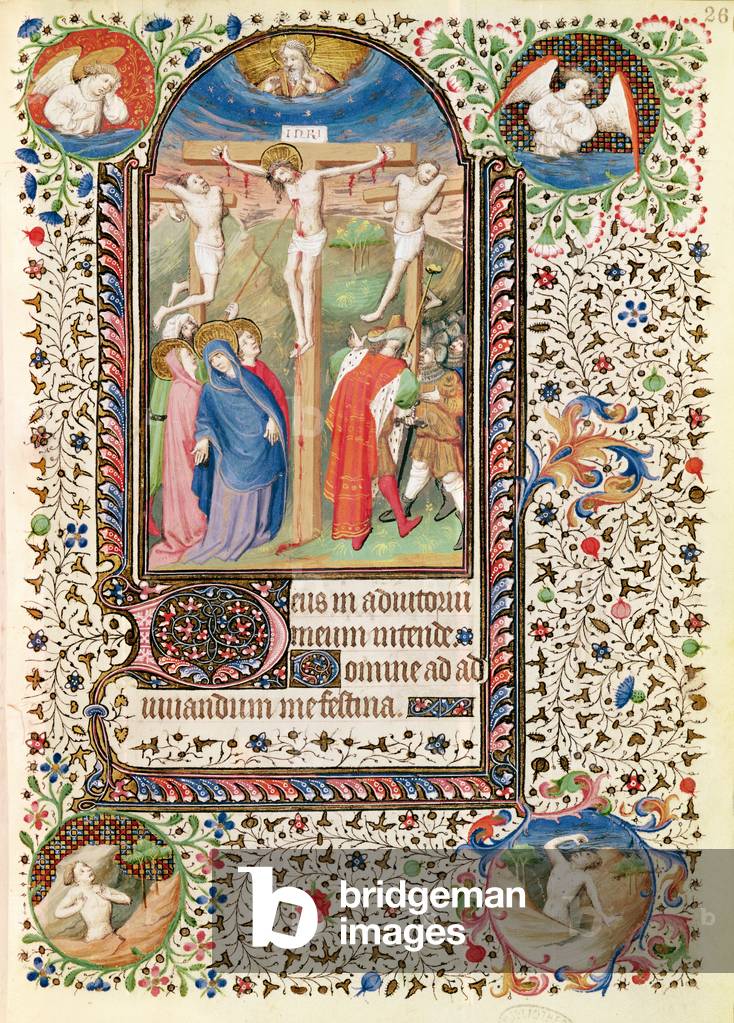 26
INRI
Deus in adiutoriu
meum intende.
Domine ad ad
iuuandum me festina.
b bridgeman
images